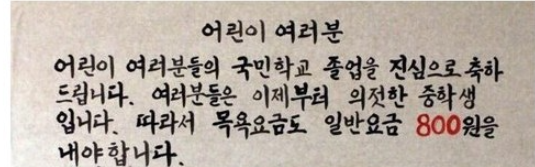 어린이 여러분
어린이 여러분들의 국민학교 졸업을 진심으로 축하
드립니다. 여러분들은 이제부터 의젓한 중학생
입니다. 따라서 목욕요금도 일반요금 800원을
내야합니다.